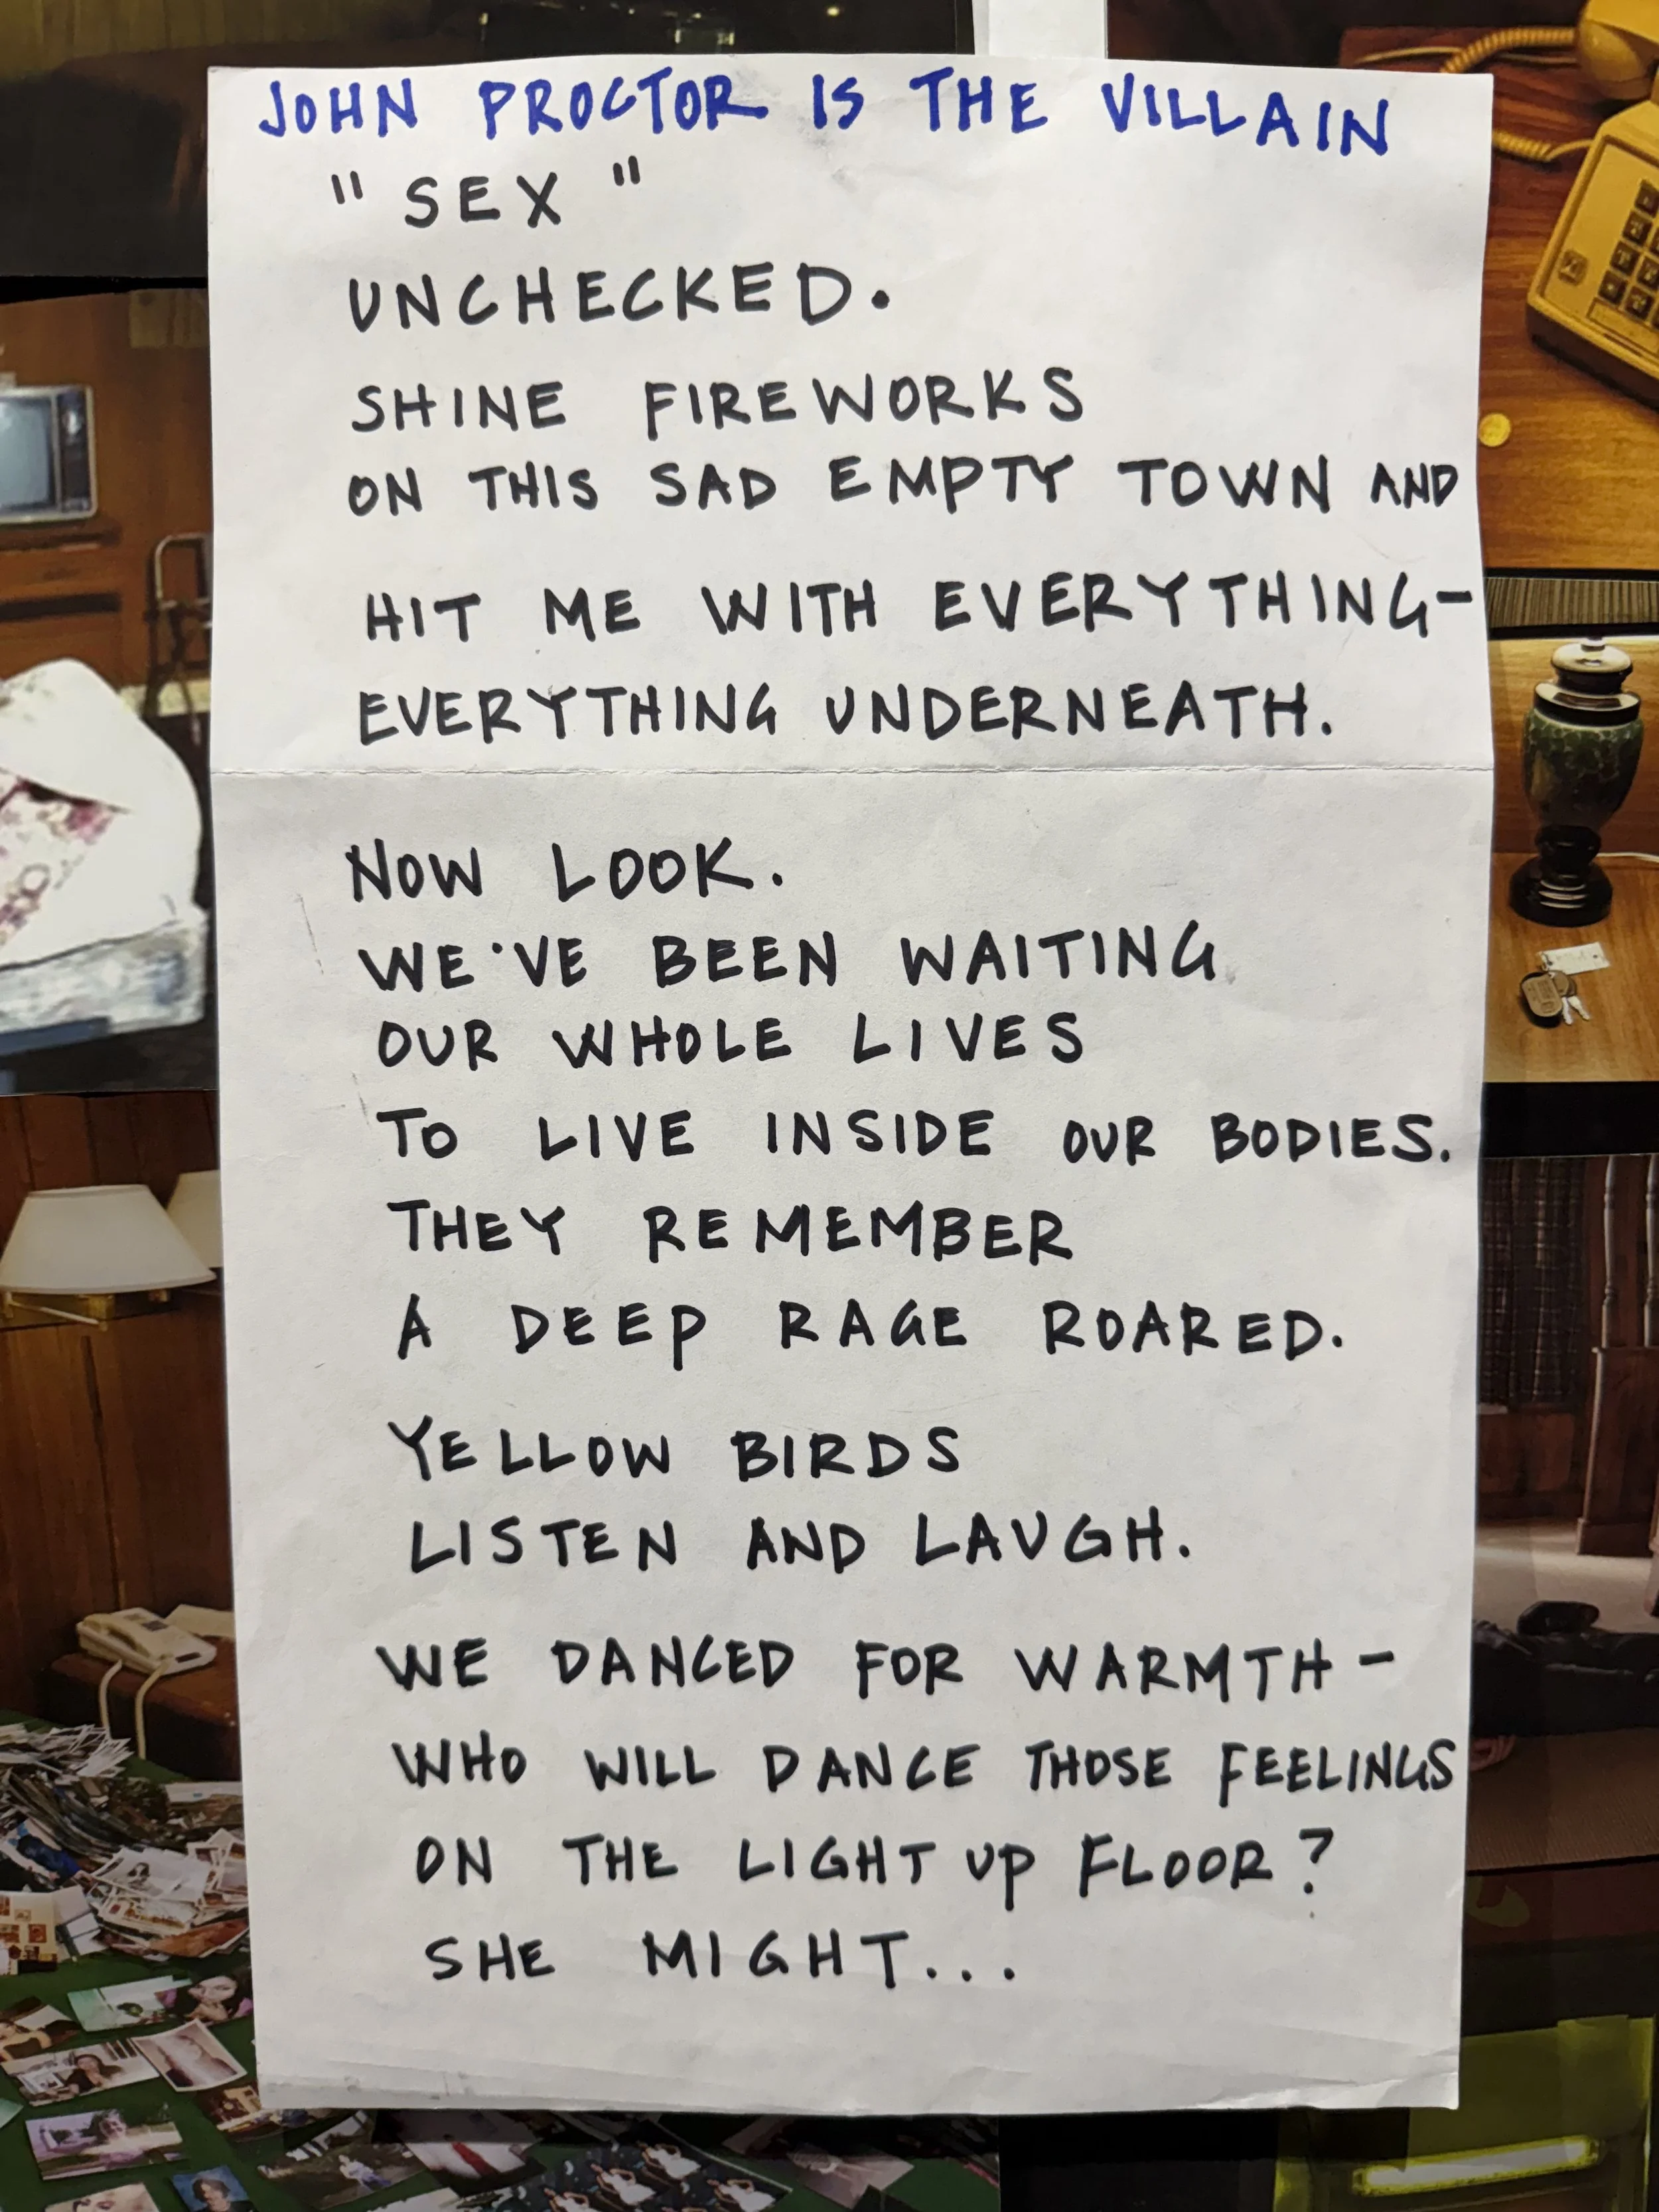 JOHN PROCTOR IS THE VILLAIN
"SEX"
UNCHECKED.
SHINE FIREWORKS
ON THIS SAD EMPTY TOWN AND
HIT ME WITH EVERYTHING-
EVERYTHING UNDERNEATH.
NOW LOOK.
WE'VE BEEN WAITING
OUR WHOLE LIVES
TO LIVE INSIDE OUR BODIES.
THEY REMEMBER
A DEEP RAGE ROARED.
YELLOW BIRDS
LISTEN AND LAUGH.
WE DANCED FOR WARMTH-
WHO WILL DANCE THOSE FEELINGS
ON THE LIGHT UP FLOOR?
SHE MIGHT...